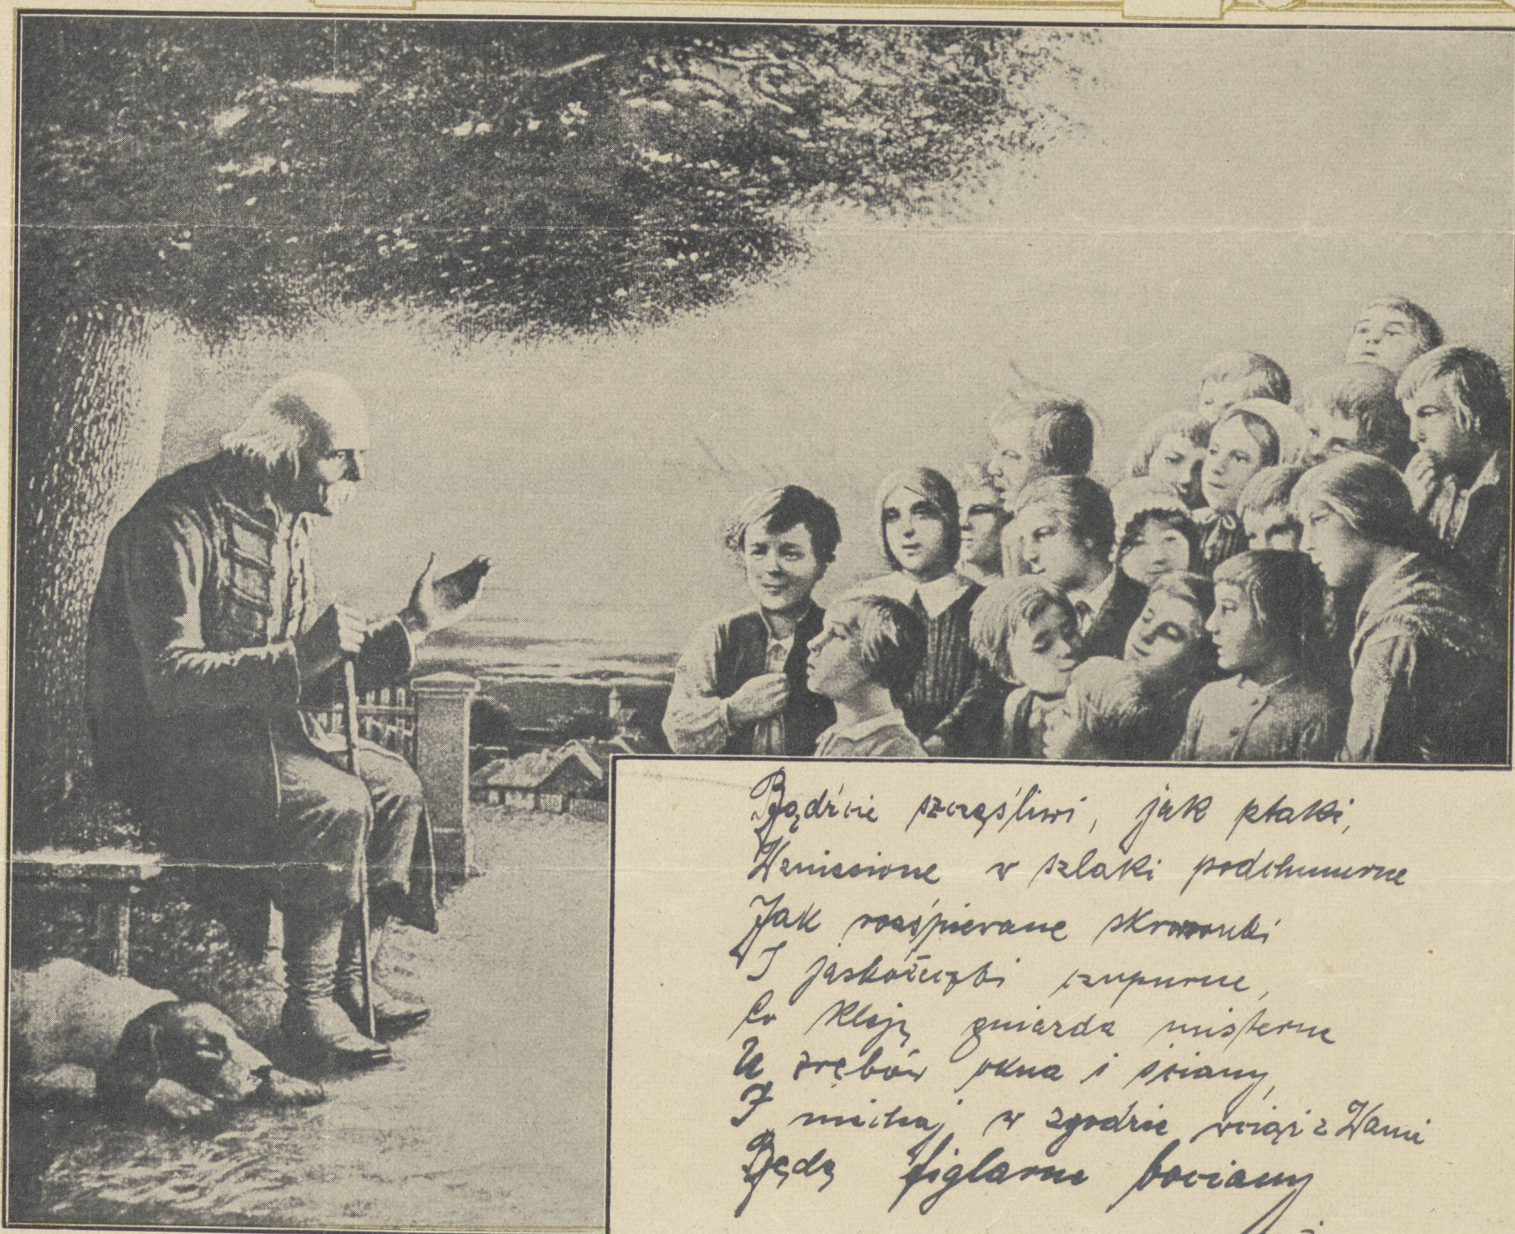 Bądźcie szczęśliwi, jak ptaki,
Wzniesione w szlaki podchmurne
Jak rozśpiewane skowronki
I jaskółeczki czupurne,
Co kleją gniazda misterne
U zrębów okna i ściany,
I niechaj w zgodzie wciąż z Wami
Będą figlarne bociany